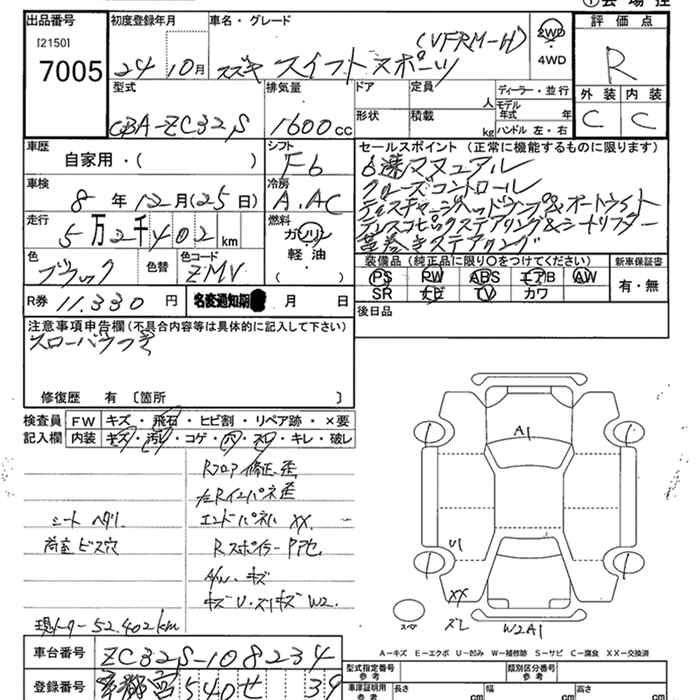 ①会場控
出品番号
[2150]
7005
初度登録年月
24 10月
車名・グレード
(VFRM-H)
スズキ スイフトスポーツ
2WD
・
4WD
評価点
R
外装 内装
C C
型式
CBA-ZC32S
排気量
1600cc
ドア
形状
定員
人
積載
kg
ディーラー・並行
モデル年式 年
ハンドル 左・右
車歴
自家用・( )
シフト
F6
車検
8年12月(25日)
冷房
A.AC
走行
5万2千402km
燃料
ガソリン
・
軽油
( )
色
ブラック
色替
色コード
ZMV
R券 11.330円
名変通知期 月 日
セールスポイント(正常に機能するものに限ります)
6速マニュアル
クルーズコントロール
ディスチャージヘッドランプ&オートライト
テレスコピックステアリング&シートリフター
革巻きステアリング
装備品(純正品に限り○をつけてください)
PS PW ABS エアB AW
SR ナビ TV カワ
新車保証書
有・無
後日品
注意事項申告欄(不具合内容等は具体的に記入して下さい)
修復歴 有〔箇所 〕
検査員記入欄
FW キズ・飛石・ヒビ割・リペア跡・×要
内装 キズ・汚レ・コゲ・穴・スレ・キレ・破レ
Rフロア修正、歪
左Rインパネ歪
シート ヘタリ
エンドパネル XX.
荷室ビス穴
Rスポイラー
A/W キズ
キズ U・スリキズ W2.
現メーター52.402km
A1
U1
XX
ズレ
W2A1
スペア
A-キズ E-エクボ U-凹み W-補修跡 S-サビ C-腐食 XX-交換済
車台番号 ZC32S-108234
登録番号 京都 540 せ 39
型式指定番号
参考
類別区分番号
参考
車庫証明用
参考
長さ cm
幅 cm
高さ cm